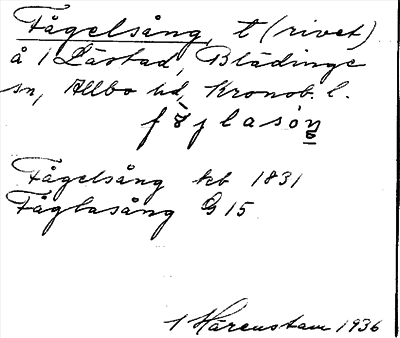 Fågelsång, t (rivet)
å 1 Låstad, Blädinge
sn, Allbo hd, Kronob. l.
fòjlasóŋ
Fågelsång kb 1831
Fåglasång G 15
1 Härenstam 1936